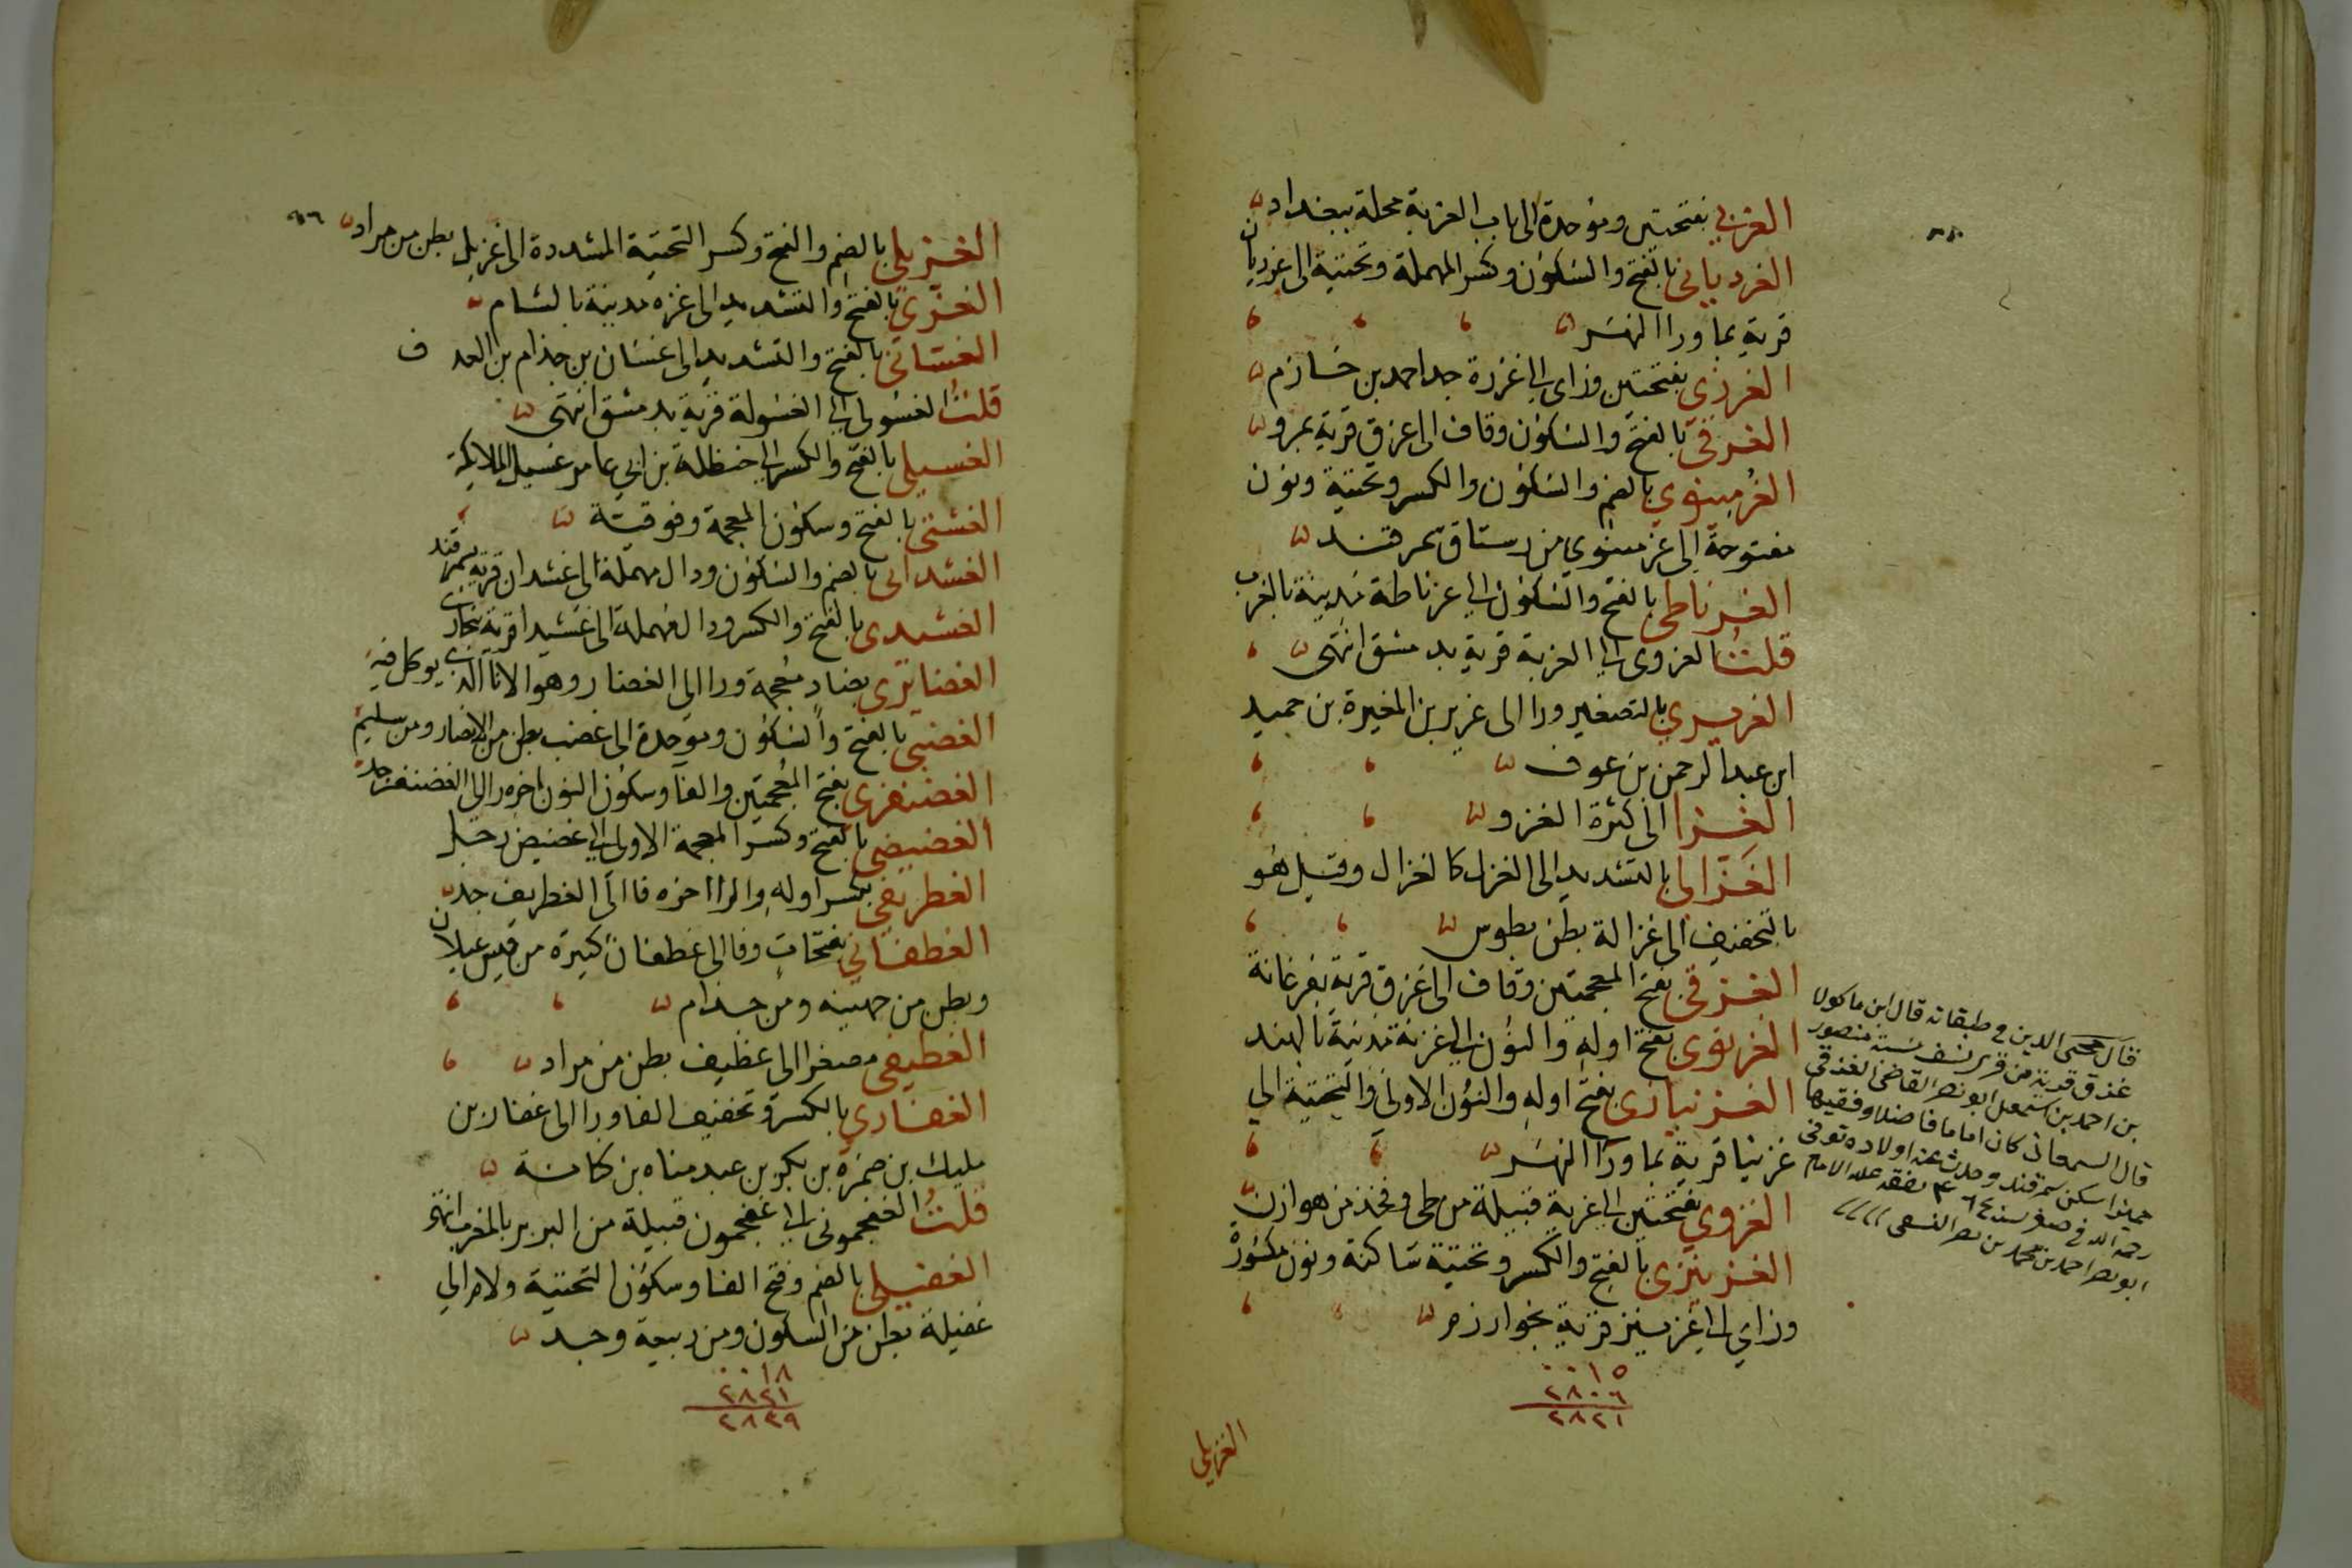 الغربي بفتحتين وموحدة الى باب الغربة محلة ببغداد
الغرديانى بالفتح والسكون وكسر المهملة وتحتية الى غرديان
قرية بما ورا النهر
الغرزى بفتحتين وزاى الى غرزة جد احمد بن حازم
الغرقى بالفتح والسكون وقاف الى غرق قرية بمرو
الغرمينوي بالضم والسكون والكسر وتحتية ونون
مفتوحة الى غرمينوي من رستاق سمرقند
الغرناطى بالفتح والسكون الى غرناطة مدينة بالغرب
قلت الغزوى الى الغربة قرية بدمشق انتهى
الغريري بالتصغير ورا الى غرير بن المغيرة بن حميد
ابن عبد الرحمن بن عوف
الغزا الى كثرة الغزو
الغزالى بالتشديد الى الغزل كالغزال وقيل هو
بالتخفيف الى غزالة بطن بطوس
الغزقى بفتح المعجمتين وقاف الى غزق قرية بفرغانة
الغزنوى بفتح اوله والنون الى غزنة مدينة بالهند
الغزنيازى بفتح اوله والنون الاولى والتحتية الى
غزنيا قرية بما ورا النهر
الغزوي بفتحتين الى غزية قبيلة من طى وفخذ من هوازن
الغزينزى بالفتح والكسر وتحتية ساكنة ونون مكسورة
وزاي الى غزينز قرية بخوارزم
٠٠١٥
٢٨٠٦
٢٨٢١
الغزيلي
قال محيى الدين في طبقاته قال ابن ماكولا
غذق قرية من قرى نسف نسبة منصور
بن احمد بن اسمعيل ابو نصر القاضى الغذقى
قال السمعانى كان اماما فاضلا وفقيها
سكن سمرقند وحدث عنه اولاده توفى
رحمه الله في صفر سنة ٤٦٤ تفقه على الامام
ابو نصر احمد بن محمد بن نصر النسفى
٥٦
الغزيلي بالضم والفتح وكسر التحتية المشددة الى غزيل بطن من مراد
الغزي بالفتح والتشديد الى غزه مدينة بالشام
الغسانى بالفتح والتشديد الى غسان بن جذام بن العد ف
قلت الغسولى الى الغسولة قرية بدمشق انتهى
الغسيلى بالفتح والكسر الى حنظلة بن ابي عامر غسيل الملايكة
الغشتى بالفتح وسكون المعجمة وفوقية
الغشدانى بالضم والسكون ودال مهملة الى غشدان قرية بسمرقند
الغشيدى بالفتح والكسر ودال مهملة الى غشيدا قرية ببخارى
الغضايرى بضاد معجمة ورا الى الغضار وهو الانا الذى يوكل فيه
الغضبى بالفتح والسكون وموحدة الى غضب بطن من الانصار ومن سليم
الغضنفرى بفتح المعجمتين والفا وسكون النون اخره را الى الغضنفر جد
الغضيضى بالفتح وكسر المعجمة الاولى الى غضيض رجل
الغطريفى بكسر اوله والرا اخره فا الى الغطريف جد
الغطفانى بفتحات وفا الى غطفان كبيرة من قيس عيلان
وبطن من جهينه ومن جذام
الغطيفى مصغرا الى غطيف بطن من مراد
الغفاري بالكسر وتخفيف الفا ورا الى غفار بن
مليك بن ضمرة بن بكر بن عبد مناه بن كنانة
قلت الغفجمونى الى غفجمون قبيلة من البربر بالمغرب انتهى
الغفيلى بالضم وفتح الفا وسكون التحتية ولام الى
غفيلة بطن من السكون ومن ربيعة وجد
٠٠١٨
٢٨٢١
٢٨٣٩